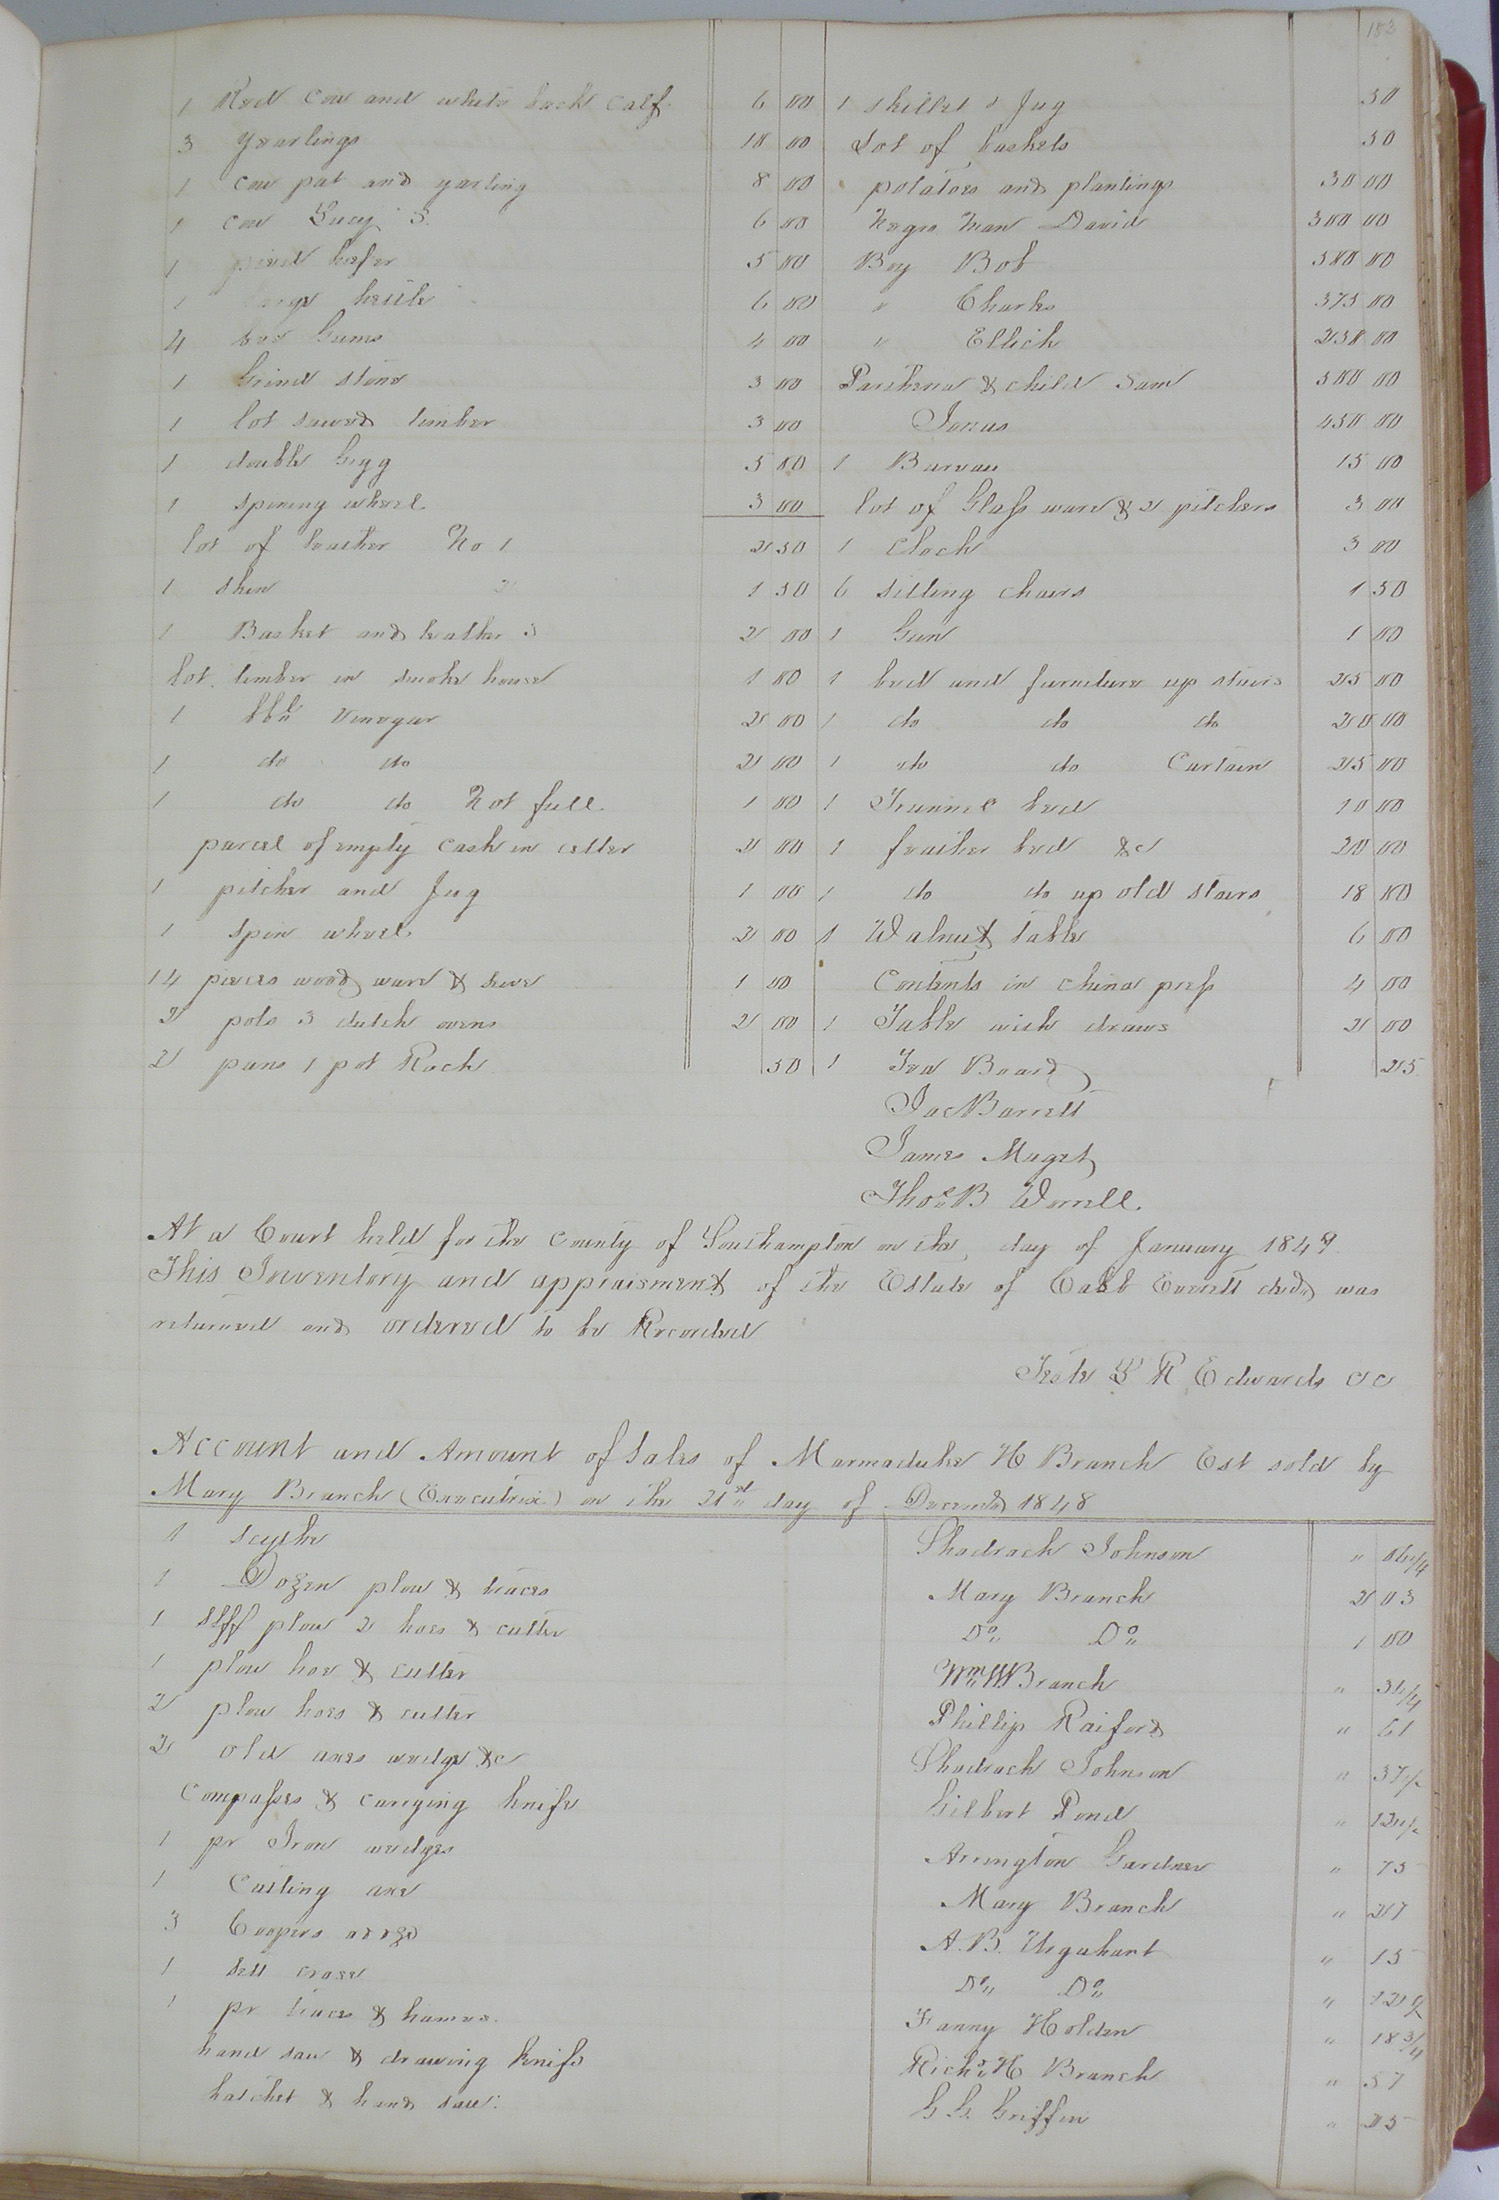 183
1 Red Cow and white back Calf 6 00
3 Yearlings 10 00
1 Cow pat and yarling 8 00
1 cow Lucy S. 6 00
1 heifer 5 00
1 kettle 6 00
4 bee Gums 4 00
1 Grind stone 3 00
1 lot sawed timber 3 00
1 double Gigg 5 00
1 spining wheel 3 00
lot of leather No 1 2 50
1 skin 2 1 50
1 Basket and leather 3 2 00
lot timber in smoke house 1 00
1 bbl Vinegar 2 00
1 do do 2 00
1 do do Not full. 1 00
parcel of empty Cask in celler 2 00
1 pitcher and Jug 1 00
1 spin wheel 2 00
14 pieces wood ware & sieve 1 00
2 pots 3 dutch ovens 2 00
2 pans 1 pot Rack 50
1 skillet & Jug 50
Lot of baskets 50
potatoes and plantings 30 00
Negro Man David 300 00
Boy Bob 500 00
" Charles 375 00
" Ellick 250 00
Parthena & child Sam 500 00
Jonas 450 00
1 Bureau 15 00
lot of Glass ware & 2 pitchers 3 00
1 Clock 3 00
6 sitting chairs 1 50
1 Gun 1 00
1 bed and furniture up stairs 25 00
1 do do do 20 00
1 do do Curtain 25 00
1 Trunnel bed 10 00
1 feather bed &c 20 00
1 do do up old stairs 18 00
1 Walnut Table 6 00
Contents in china press 4 00
1 Table with draws 2 00
1 Tea Board 25
Jac Barrett
James Maget
Thos B Worrell.
At a Court held for the County of Southampton on the day of January 1849
This Inventory and appraisment of the Estate of Caleb Everett decd was
returned and ordered to be Recorded
Teste L R Edwards CC
Account and Amount of Sales of Marmaduke H Branch Est sold by
Mary Branch (Executrix) on the 21st day of December 1848
1 scythe Shadrach Johnson " 06 1/4
1 Dozen plow & traces Mary Branch 2 03
1 plow 2 hoes & cutter Do Do 1 00
1 plow hoe & cutter Wm W Branch " 31 1/4
2 plow hoes & cutter Phillip Raiford " 61
2 old axes wedge &c Shadrach Johnson " 37 1/2
Compasses & carrying knife Gilbert Pond " 12 1/2
1 pr Iron wedges Arrington Gardner " 75
1 Cutting axe Mary Branch " 27
3 Coopers A. B. Urquhart " 15
1 sett croze Do Do " 12 1/2
1 pr traces & hames. Fanny Holden " 18 3/4
hand saw & drawing knife Richd H Branch " 57
hatchet & hand saw: G. G. Griffin " 25